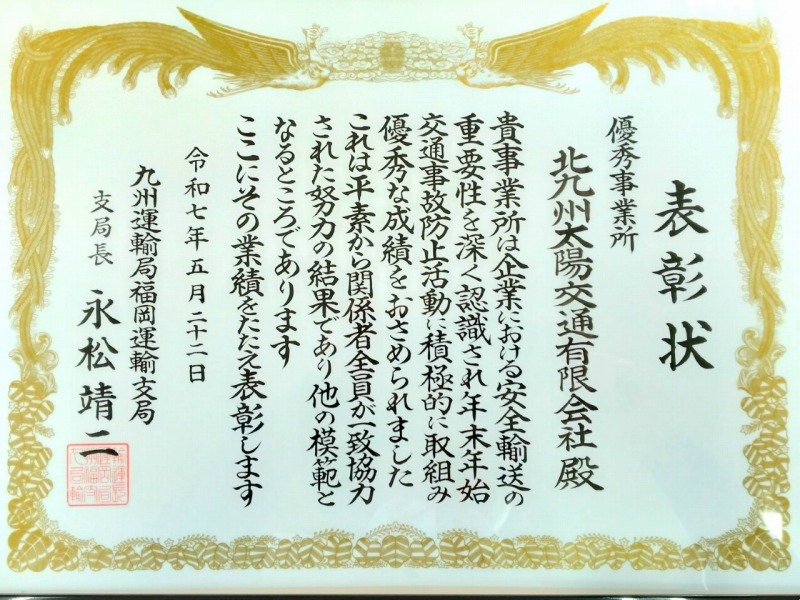 表彰状
優秀事業所
北九州太陽交通有限会社 殿
貴事業所は企業における安全輸送の
重要性を深く認識され年末年始
交通事故防止活動に積極的に取組み
優秀な成績をおさめられました
これは平素から関係者全員が一致協力
された努力の結果であり他の模範と
なるところであります
ここにその業績をたたえ表彰します
令和七年五月二十二日
九州運輸局福岡運輸支局
支局長 永松靖二